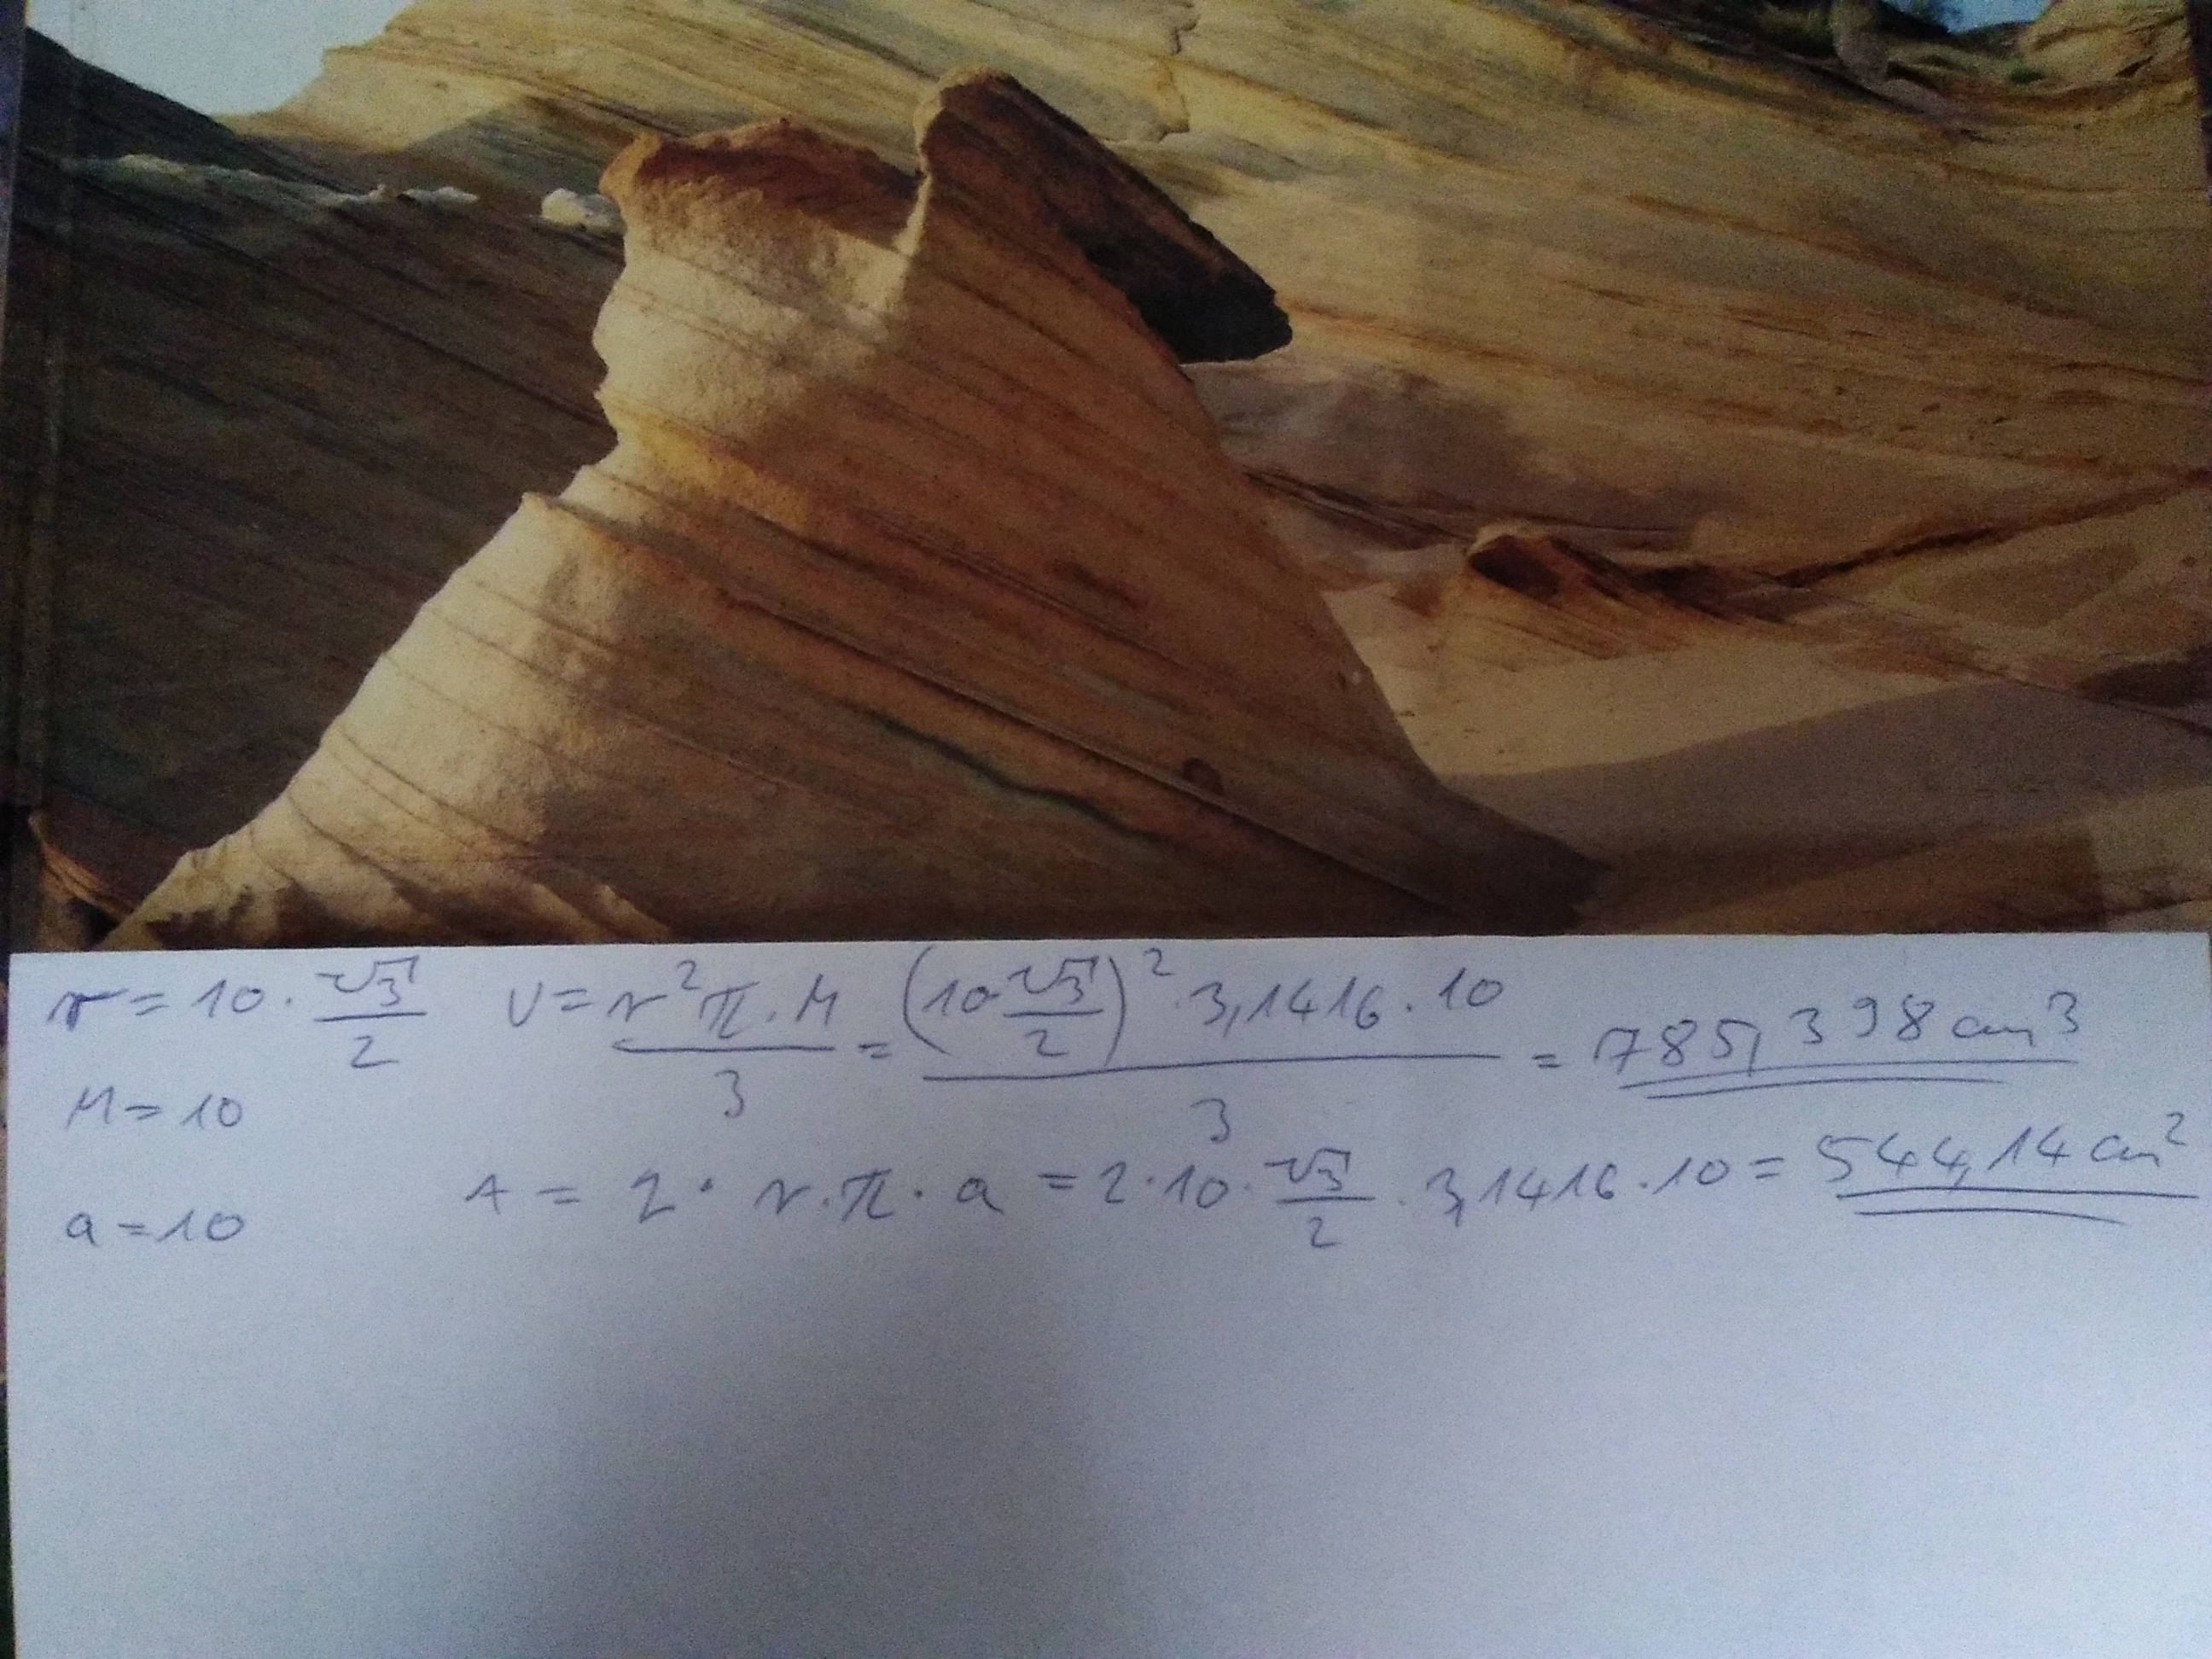 r = 10 · √3/2   V = r²π · M/3 = (10 · √3/2)² · 3,1416 · 10/3 = 785,398 cm³
M = 10
A = 2 · r · π · a = 2 · 10 · √3/2 · 3,1416 · 10 = 544,14 cm²
a = 10